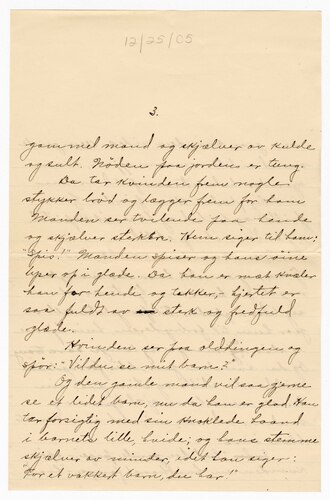 12/25/05
3.
gammel mand og skjælver av kulde
og sult. Nöden paa jorden er tung.
Da tar kvinden frem nogle
stykker bröd og lægger frem for ham
Manden ser tvilende paa hende
og skjælver sterkere. Hun siger til ham:
"Spis!" Manden spiser og hans øine
liver op i glæde. Da han er mæt knæler
han for hende og takker, hjertet er
saa fuldt av sterk og fredfuld
glæde.
Kvinden ser paa oldingen og
spör: "Vil du se mit barn?"
Og den gamle mand vil saa gjerne
se et lidet barn, nu da han er glad. Han
tar forsigtig med sin knoklede haand
i barnets lille, hvide; og hans stemme
skjælver av minder, idet han siger:
"For et vakkert barn, du har."